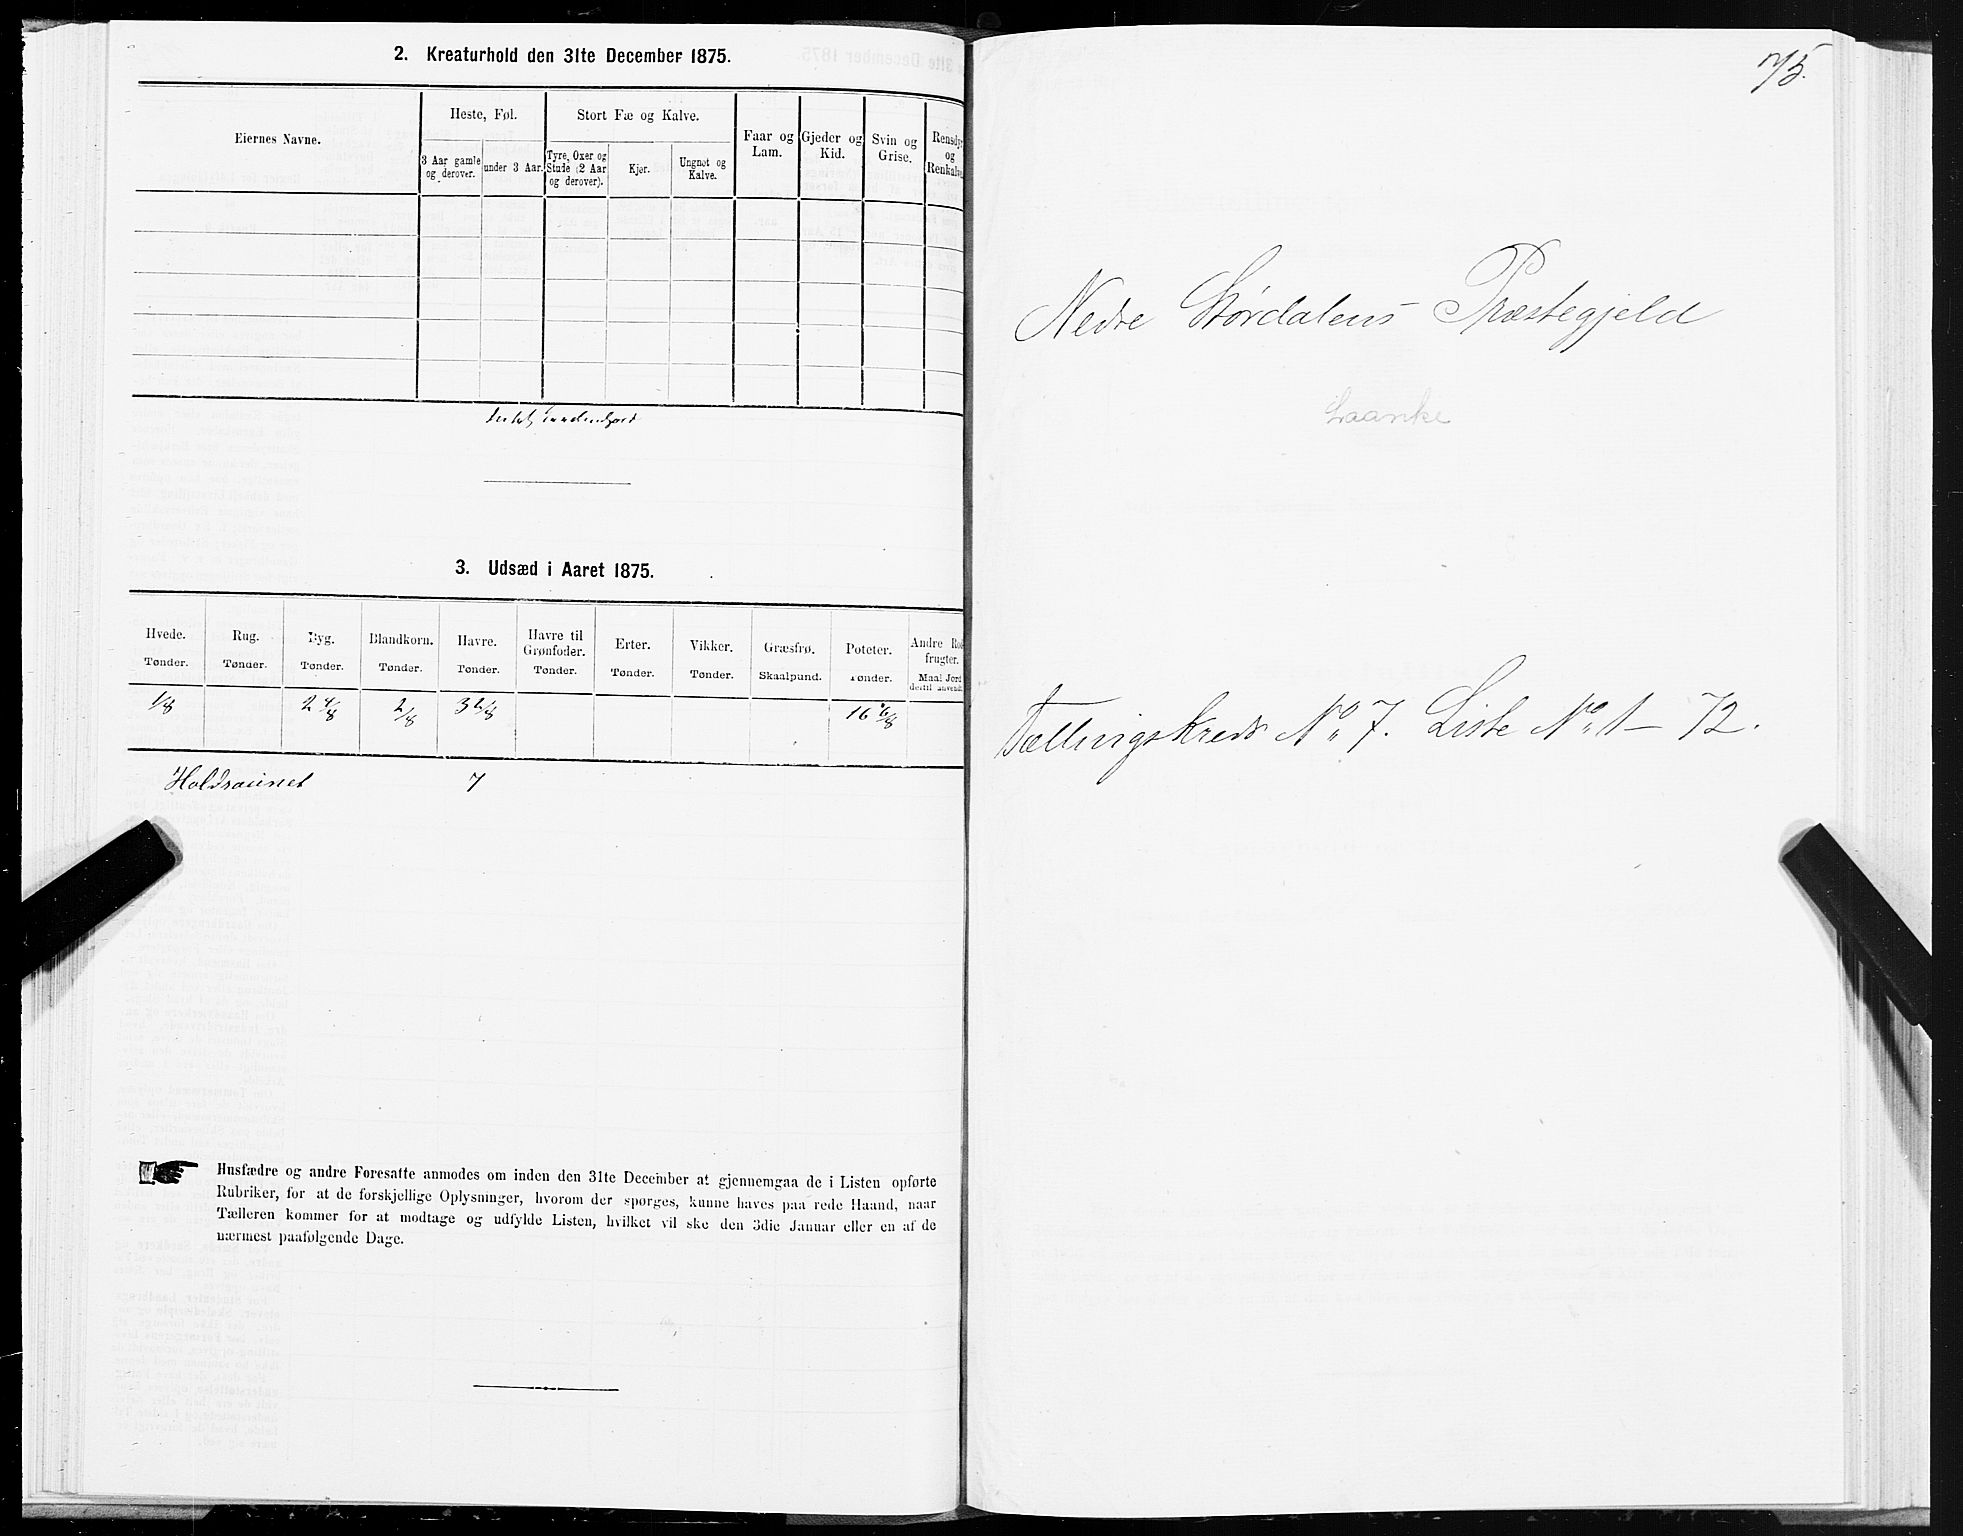 2. Kreaturhold den 31te December 1875.
Eiernes Navne.
Heste, Føl.
3 Aar gamle og derover.
under 3 Aar.
Stort Fæ og Kalve.
Tyre, Oxer og Stude (2 Aar og derover).
Kjør.
Ungnøt og Kalve.
Faar og Lam.
Gjeder og Kid.
Svin og Grise.
Rensdyr og Renkalve
3. Udsæd i Aaret 1875.
Hvede. Rug. Byg. Blandkorn. Havre. Havre til Grønfoder. Erter. Vikker. Græsfrø. Poteter. Andre Rod- frugter.
Tønder. Tønder. Tønder. Tønder. Tønder. Tønder. Tønder. Tønder. Skaalpund. Tønder. Maal Jord dertil anvendt
1/8 2 4/8 2/8 3 6/8 16 6/8
Holdraunet 7
Husfædre og andre Foresatte anmodes om inden den 31te December at gjennemgaa de i Listen opførte
Rubriker, for at de forskjellige Oplysninger, hvorom der spørges, kunne haves paa rede Haand, naar
Tælleren kommer for at modtage og udfylde Listen, hvilket vil ske den 3die Januar eller en af de
nærmest paafølgende Dage.
75.
Nedre Størdalens Præstegjeld
Laanke
Tællingskreds No 7. Liste No 1 - 72.